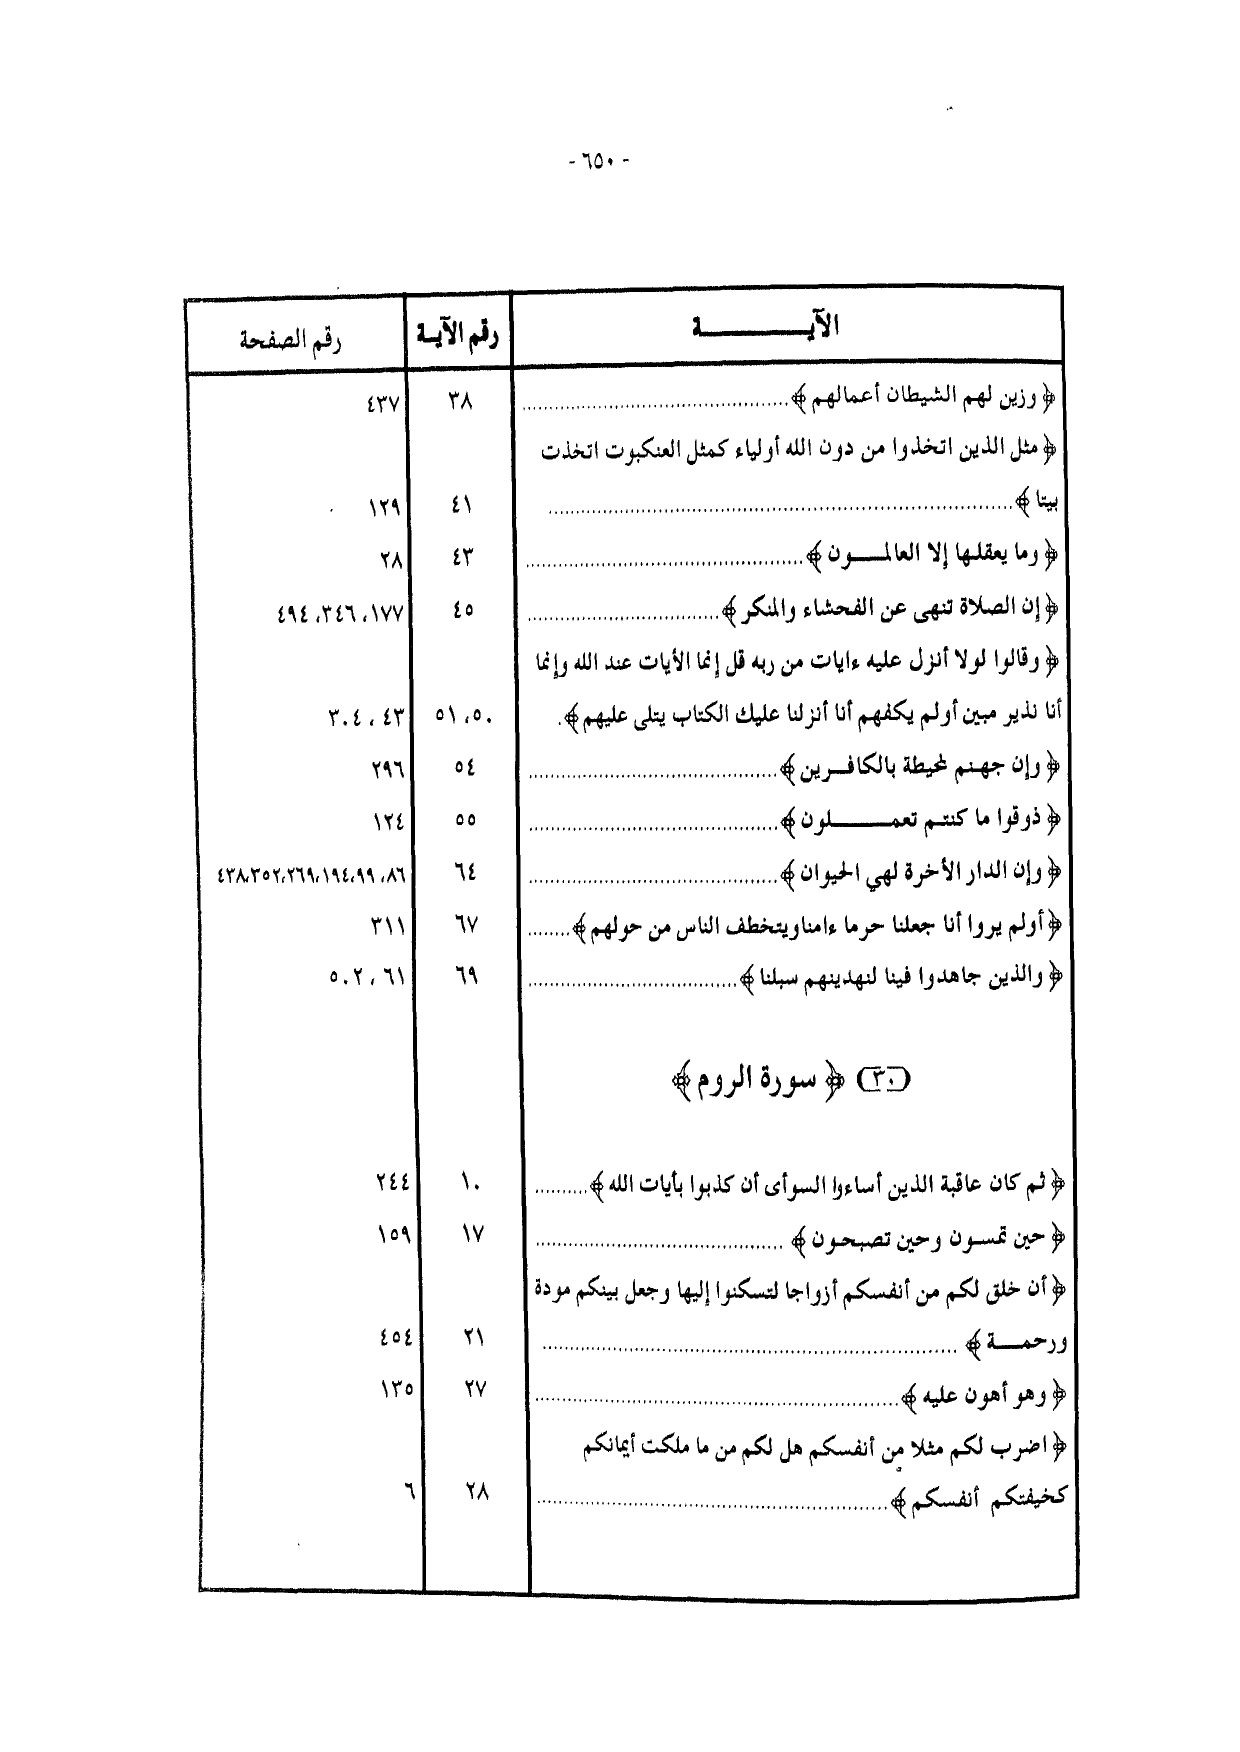 - ٦٥٠ -
الآيـــــــــــة رقم الآيـة رقم الصفحة
﴿ وزين لهم الشيطان أعمالهم ﴾........................ ٣٨ ٤٣٧
﴿ مثل الذين اتخذوا من دون الله أولياء كمثل العنكبوت اتخذت
بيتا ﴾........................ ٤١ ١٢٩
﴿ وما يعقلها إلا العالمـــون ﴾........................ ٤٣ ٢٨
﴿ إن الصلاة تنهى عن الفحشاء والمنكر ﴾........................ ٤٥ ١٧٧، ٣٤٦، ٤٩٤
﴿ وقالوا لولا أنزل عليه ءايات من ربه قل إنما الأيات عند الله وإنما
أنا نذير مبين أولم يكفهم أنا أنزلنا عليك الكتاب يتلى عليهم ﴾. ٥٠، ٥١ ٤٣، ٣٠٤
﴿ وإن جهنم لمحيطة بالكافـرين ﴾........................ ٥٤ ٢٩٦
﴿ ذوقوا ما كنتم تعمـــــلون ﴾........................ ٥٥ ١٢٤
﴿ وإن الدار الأخرة لهي الحيوان ﴾........................ ٦٤ ٨٦، ٩٩، ١٩٤، ٢٦٩، ٣٥٢، ٤٣٨
﴿ أولم يروا أنا جعلنا حرما ءامنا ويتخطف الناس من حولهم ﴾........ ٦٧ ٣١١
﴿ والذين جاهدوا فينا لنهدينهم سبلنا ﴾........................ ٦٩ ٦١، ٥٠٢
(٣٠) ﴿ سورة الروم ﴾
﴿ ثم كان عاقبة الذين أساءوا السوأى أن كذبوا بأيات الله ﴾.......... ١٠ ٢٤٤
﴿ حين تمسون وحين تصبحون ﴾........................ ١٧ ١٥٩
﴿ أن خلق لكم من أنفسكم أزواجا لتسكنوا إليها وجعل بينكم مودة
ورحمـــة ﴾........................ ٢١ ٤٥٤
﴿ وهو أهون عليه ﴾........................ ٢٧ ١٣٥
﴿ اضرب لكم مثلا من أنفسكم هل لكم من ما ملكت أيمانكم
كخيفتكم أنفسكم ﴾........................ ٢٨ ٦